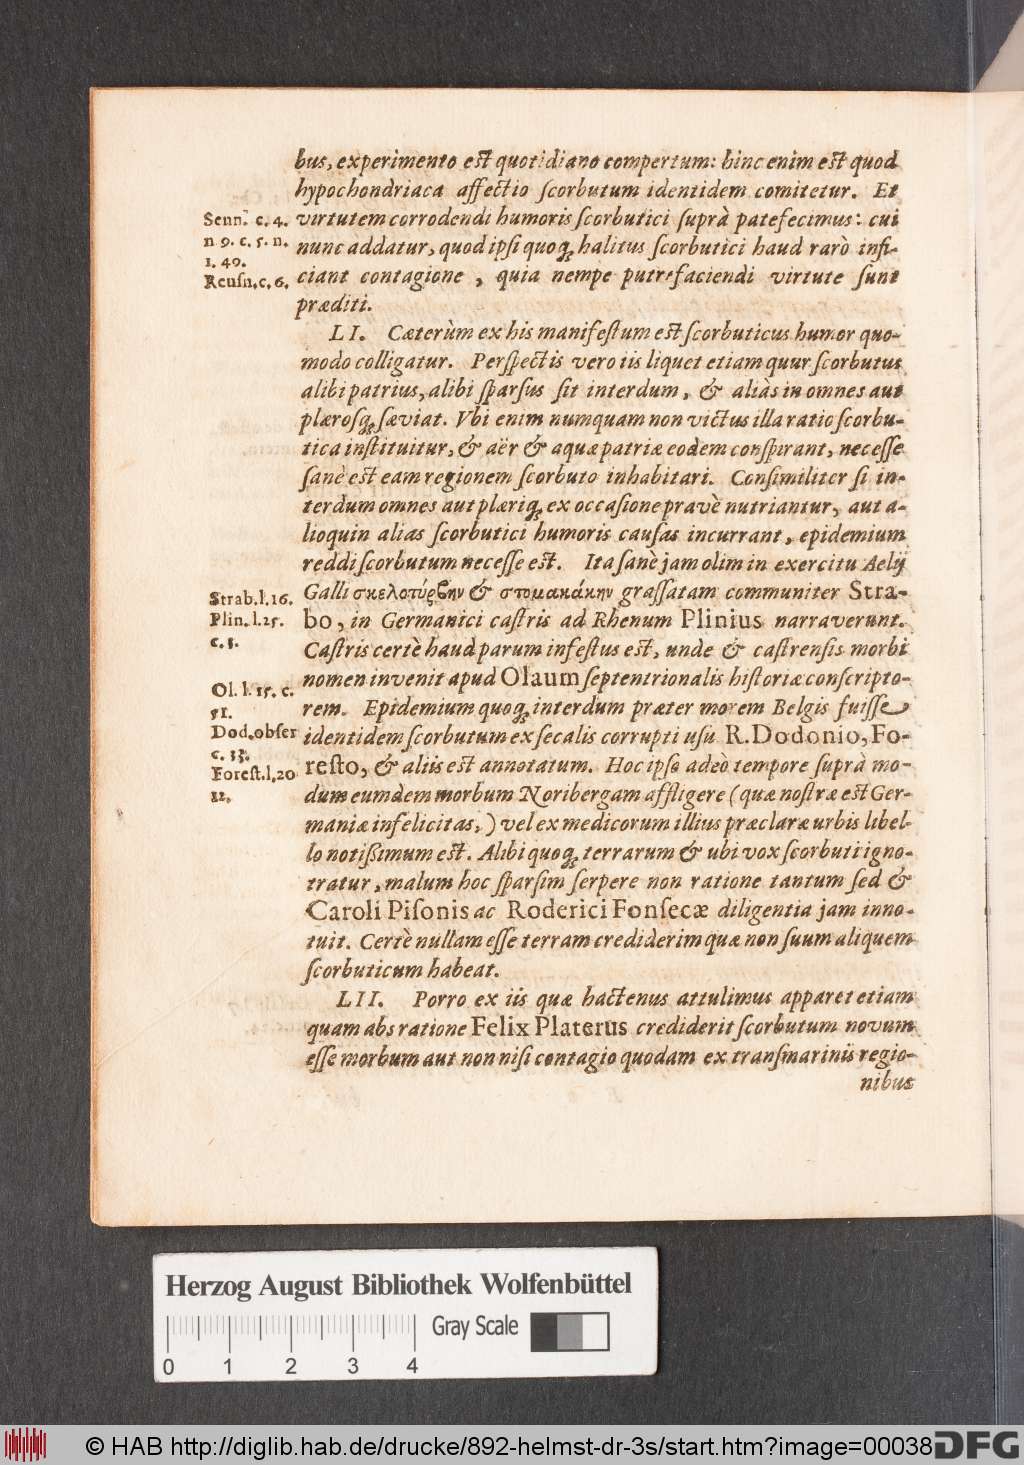 bus, experimento est quotidiano compertum: hinc enim est quod
hypochondriaca affectio scorbutum identidem comitetur. Et
Senn. c. 4.
n 9. c. 5. n.
1. 40.
Reusn. c. 6.
virtutem corrodendi humoris scorbutici suprà patefecimus: cui
nunc addatur, quod ipsi quoq; halitus scorbutici haud rarò infi-
ciant contagione, quia nempe putrefaciendi virtute sunt
præditi.
LI. Cæterùm ex his manifestum est scorbuticus humor quo-
modo colligatur. Perspectis vero iis liquet etiam quur scorbutus
alibi patrius, alibi sparsus sit interdum, & aliàs in omnes aut
plærosq; sæviat. Vbi enim numquam non victus illa ratio scorbu-
tica instituitur, & aër & aquæ patriæ eodem conspirant, necesse
sanè est eam regionem scorbuto inhabitari. Consimiliter si in-
terdum omnes aut plæriq; ex occasione pravè nutriantur, aut a-
lioquin alias scorbutici humoris causas incurrant, epidemium
reddi scorbutum necesse est. Ita sanè jam olim in exercitu Aelij
Galli σκελοτύρβην & στομακάκην grassatam communiter Stra-
Strab. l. 16.
Plin. l. 25.
c. 3.
bo, in Germanici castris ad Rhenum Plinius narraverunt.
Castris certè haud parum infestus est, unde & castrensis morbi
nomen invenit apud Olaum septentrionalis historiæ conscripto-
Ol. l. 15. c.
51.
Dod. obser
c. 33.
Forest. l. 20
12.
rem. Epidemium quoq; interdum præter morem Belgis fuisse
identidem scorbutum ex secalis corrupti usu R. Dodonio, Fo-
resto, & aliis est annotatum. Hoc ipso adeò tempore suprà mo-
dum eumdem morbum Noribergam affligere (quæ nostræ est Ger-
maniæ infelicitas,) vel ex medicorum illius præclaræ urbis libel-
lo notißimum est. Alibi quoq; terrarum & ubi vox scorbuti igno-
tratur, malum hoc sparsim serpere non ratione tantum sed &
Caroli Pisonis ac Roderici Fonsecæ diligentia jam inno-
tuit. Certè nullam esse terram crediderim quæ non suum aliquem
scorbuticum habeat.
LII. Porro ex iis quæ hactenus attulimus apparet etiam
quam abs ratione Felix Platerus crediderit scorbutum novum
esse morbum aut non nisi contagio quodam ex transmarinis regio-
nibus
Herzog August Bibliothek Wolfenbüttel
Gray Scale
0 1 2 3 4
© HAB http://diglib.hab.de/drucke/892-helmst-dr-3s/start.htm?image=00038
DFG